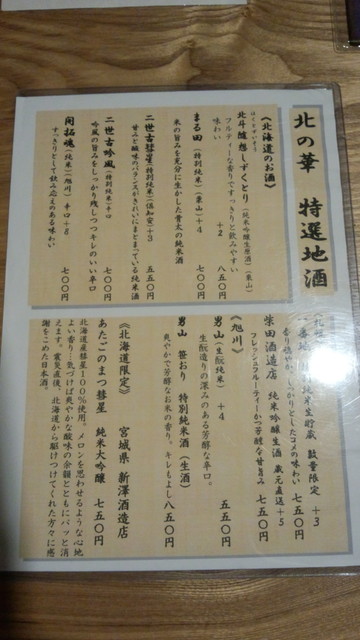 北の華 特選地酒
《北海道のお酒》
北斗随想しずくとり(純米吟醸生原酒)(栗山)
フルーティーな香りですっきりと飲みやすい
味わい +2 八五〇円
まる田(特別純米)(栗山)+4 七〇〇円
米の旨みを充分に生かした骨太の純米酒
二世古彗星(特別純米)(倶知安)+3 五五〇円
甘みと酸味のバランスがきれいにまとまっている純米酒
二世古吟風(特別純米)辛口 七〇〇円
吟風の旨みをしっかり残しつつキレのいい辛口
開拓魂(純米)(旭川)辛口+8 七〇〇円
すっきりとして飲み応えのある味わい
純米生貯蔵 数量限定 +3
しっかりとしたコメの味わい 七五〇円
柴田酒造店 純米吟醸生酒 蔵元直送+5
フレッシュフルーティーかつ芳醇な甘旨み 七五〇円
《旭川》
男山(生酛純米) +4 五五〇円
生酛造りの深みのある芳醇な辛口。
男山 笹おり 特別純米酒(生酒)
爽やかで芳醇なお米の香り。キレもよし八五〇円
《北海道限定》 宮城県 新澤酒造店
あたごのまつ彗星 純米大吟醸 七五〇円
北海道彗星100%使用。メロンを思わせるような心地
よい香り…気づけば爽やかな酸味の余韻とともにパッと消
えます。震災直後、北海道から駆けつけてくれた方々に感
謝をこめた日本酒。